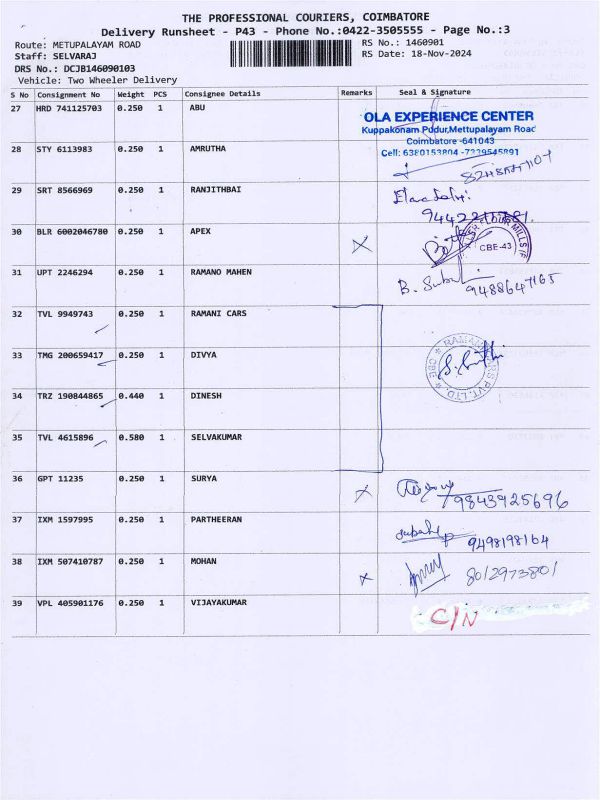 THE PROFESSIONAL COURIERS, COIMBATORE
Delivery Runsheet - P43 - Phone No.:0422-3505555 - Page No.:3
Route: METUPALAYAM ROAD
RS No.: 1460901
Staff: SELVARAJ
RS Date: 18-Nov-2024
DRS No.: DCJB146090103
Vehicle: Two Wheeler Delivery
S No Consignment No Weight PCS Consignee Details Remarks Seal & Signature
27 HRD 741125703 0.250 1 ABU
OLA EXPERIENCE CENTER
Kuppakonam Pudur,Mettupalayam Road
Coimbatore -641043
Cell: 6380153804 -7339545891
28 STY 6113983 0.250 1 AMRUTHA
29 SRT 8566969 0.250 1 RANJITHBAI
30 BLR 6002046780 0.250 1 APEX
CBE-43
31 UPT 2246294 0.250 1 RAMANO MAHEN
B. 9488647165
32 TVL 9949743 0.250 1 RAMANI CARS
33 TMG 200659417 0.250 1 DIVYA
34 TRZ 190844865 0.440 1 DINESH
35 TVL 4615896 0.580 1 SELVAKUMAR
36 GPT 11235 0.250 1 SURYA
9843925696
37 IXM 1597995 0.250 1 PARTHEERAN
9498198164
38 IXM 507410787 0.250 1 MOHAN
8012973801
39 VPL 405901176 0.250 1 VIJAYAKUMAR
C/N